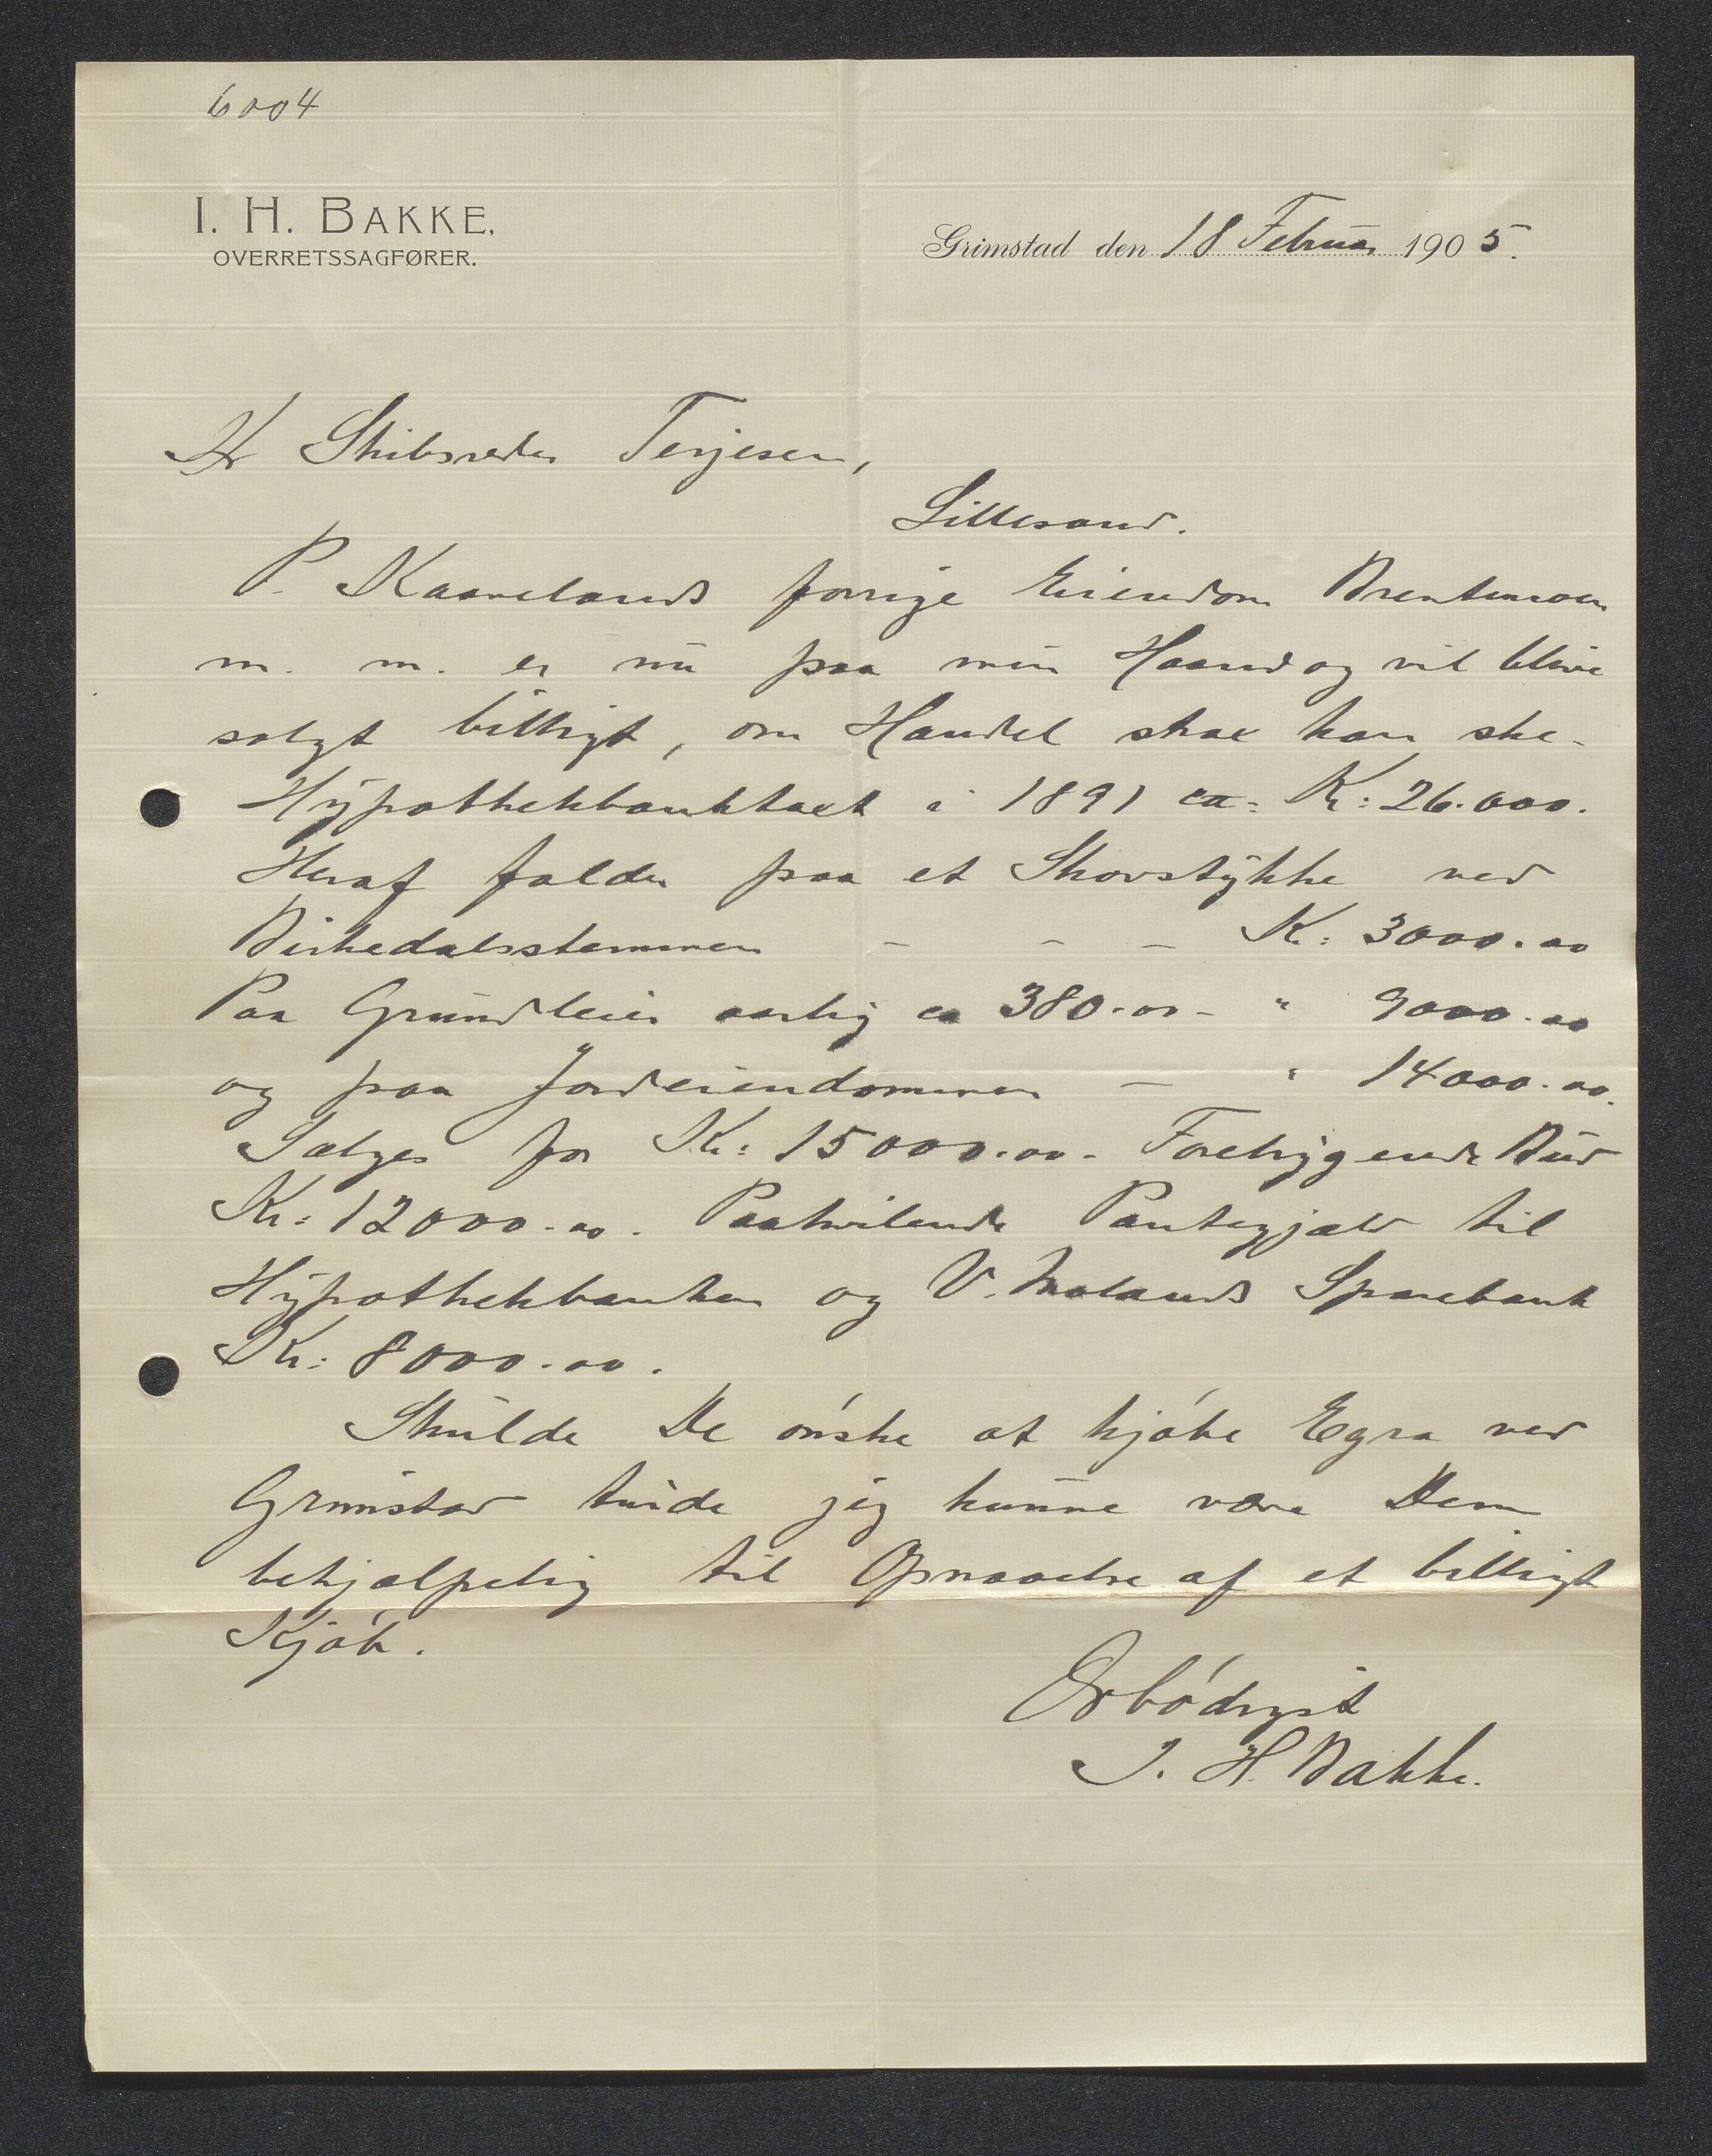 6004
I. H. BAKKE,
OVERRETSSAGFØRER.
Grimstad den 18 Februar 1905.
Hr Skibsreder Terjesen,
Lillesand.
P. Kaarelands forrige Eiendom Brentemoen
m. m. er nu paa min Haand og vil blive
solgt billigt, om Handel strax kan ske.
Hypothekbanktaxt i 1891 ca: Kr: 26.000.
Heraf falder paa et Skovstykke ved
Birkedalsstemmen - - - Kr: 3000.00
Paa Grundleier aarlig ca 380.00 - " 9000.00
og paa Jordeiendommen - " 14000.00.
Sælges for Kr: 15000.00. Foreliggende Bud
Kr: 12000.00. Paahvilende Pantegjæld til
Hypothekbanken og V. Molands Sparebank
Kr: 8000.00.
Skulde De ønske at kjøbe Egra ved
Grimstad turde jeg kunne være Dem
behjælpelig til Opnaaelse af et billigt
Kjøb.
Ærbødigst
I. H. Bakke.